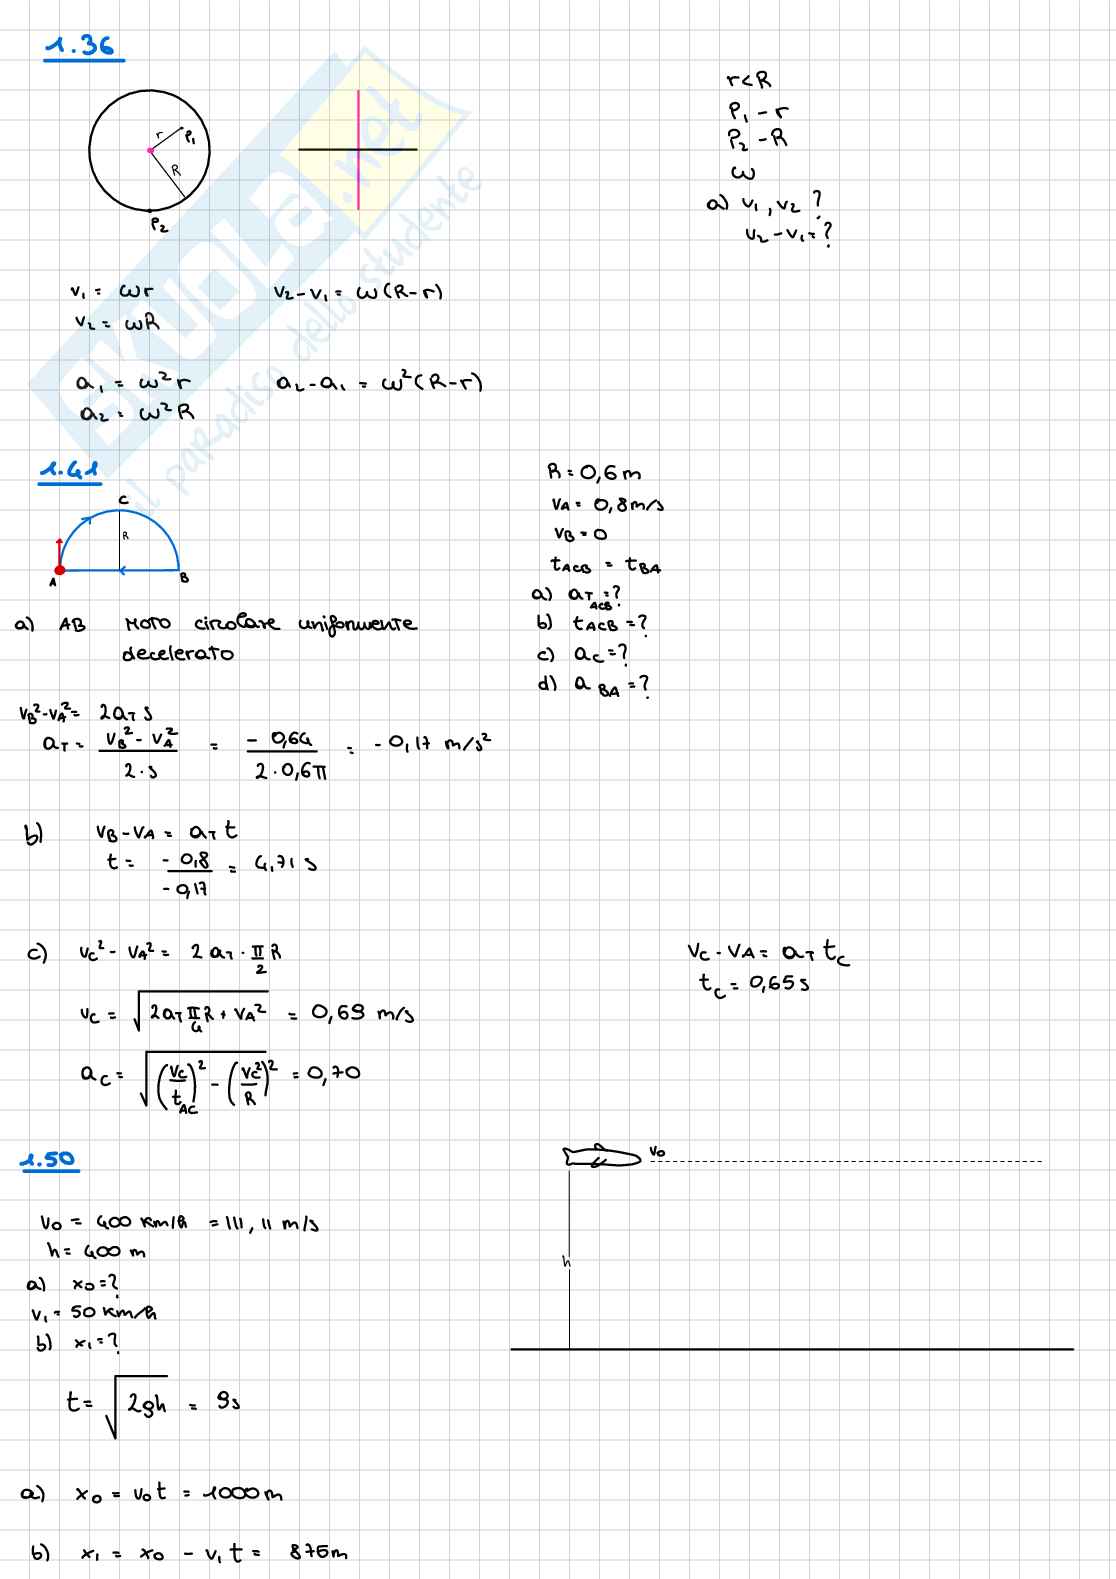 1.36
r
P₁
R
P₂
r<R
P₁ - r
P₂ - R
ω
a) v₁, v₂ ?
v₂ - v₁ = ?
v₁ = ωr
v₂ - v₁ = ω(R-r)
v₂ = ωR
a₁ = ω²r
a₂ - a₁ = ω²(R-r)
a₂ = ω²R
SKUOLA.net
il paradiso dello studente
1.41
C
R
A
B
R = 0,6 m
vA = 0,8 m/s
vB = 0
tACB = tBA
a) aT ACB = ?
b) tACB = ?
c) aC = ?
d) aBA = ?
a) AB Moto circolare uniformemente
decelerato
vB² - vA² = 2aT s
aT = (vB² - vA²)/(2·s) = (-0,64)/(2·0,6π) = -0,17 m/s²
b) vB - vA = aT t
t = (-0,8)/(-0,17) = 4,71 s
c) vC² - vA² = 2 aT · π/2 R
vC - vA = aT tC
tC = 0,65 s
vC = √(2aT π/4 R + vA²) = 0,69 m/s
aC = √((vC/tAC)² - (vC²/R)²) = 0,70
1.50
v₀
h
v₀ = 400 km/h = 111,11 m/s
h = 400 m
a) x₀ = ?
v₁ = 50 km/h
b) x₁ = ?
t = √(2gh) = 9s
a) x₀ = v₀t = 1000 m
b) x₁ = x₀ - v₁t = 875 m